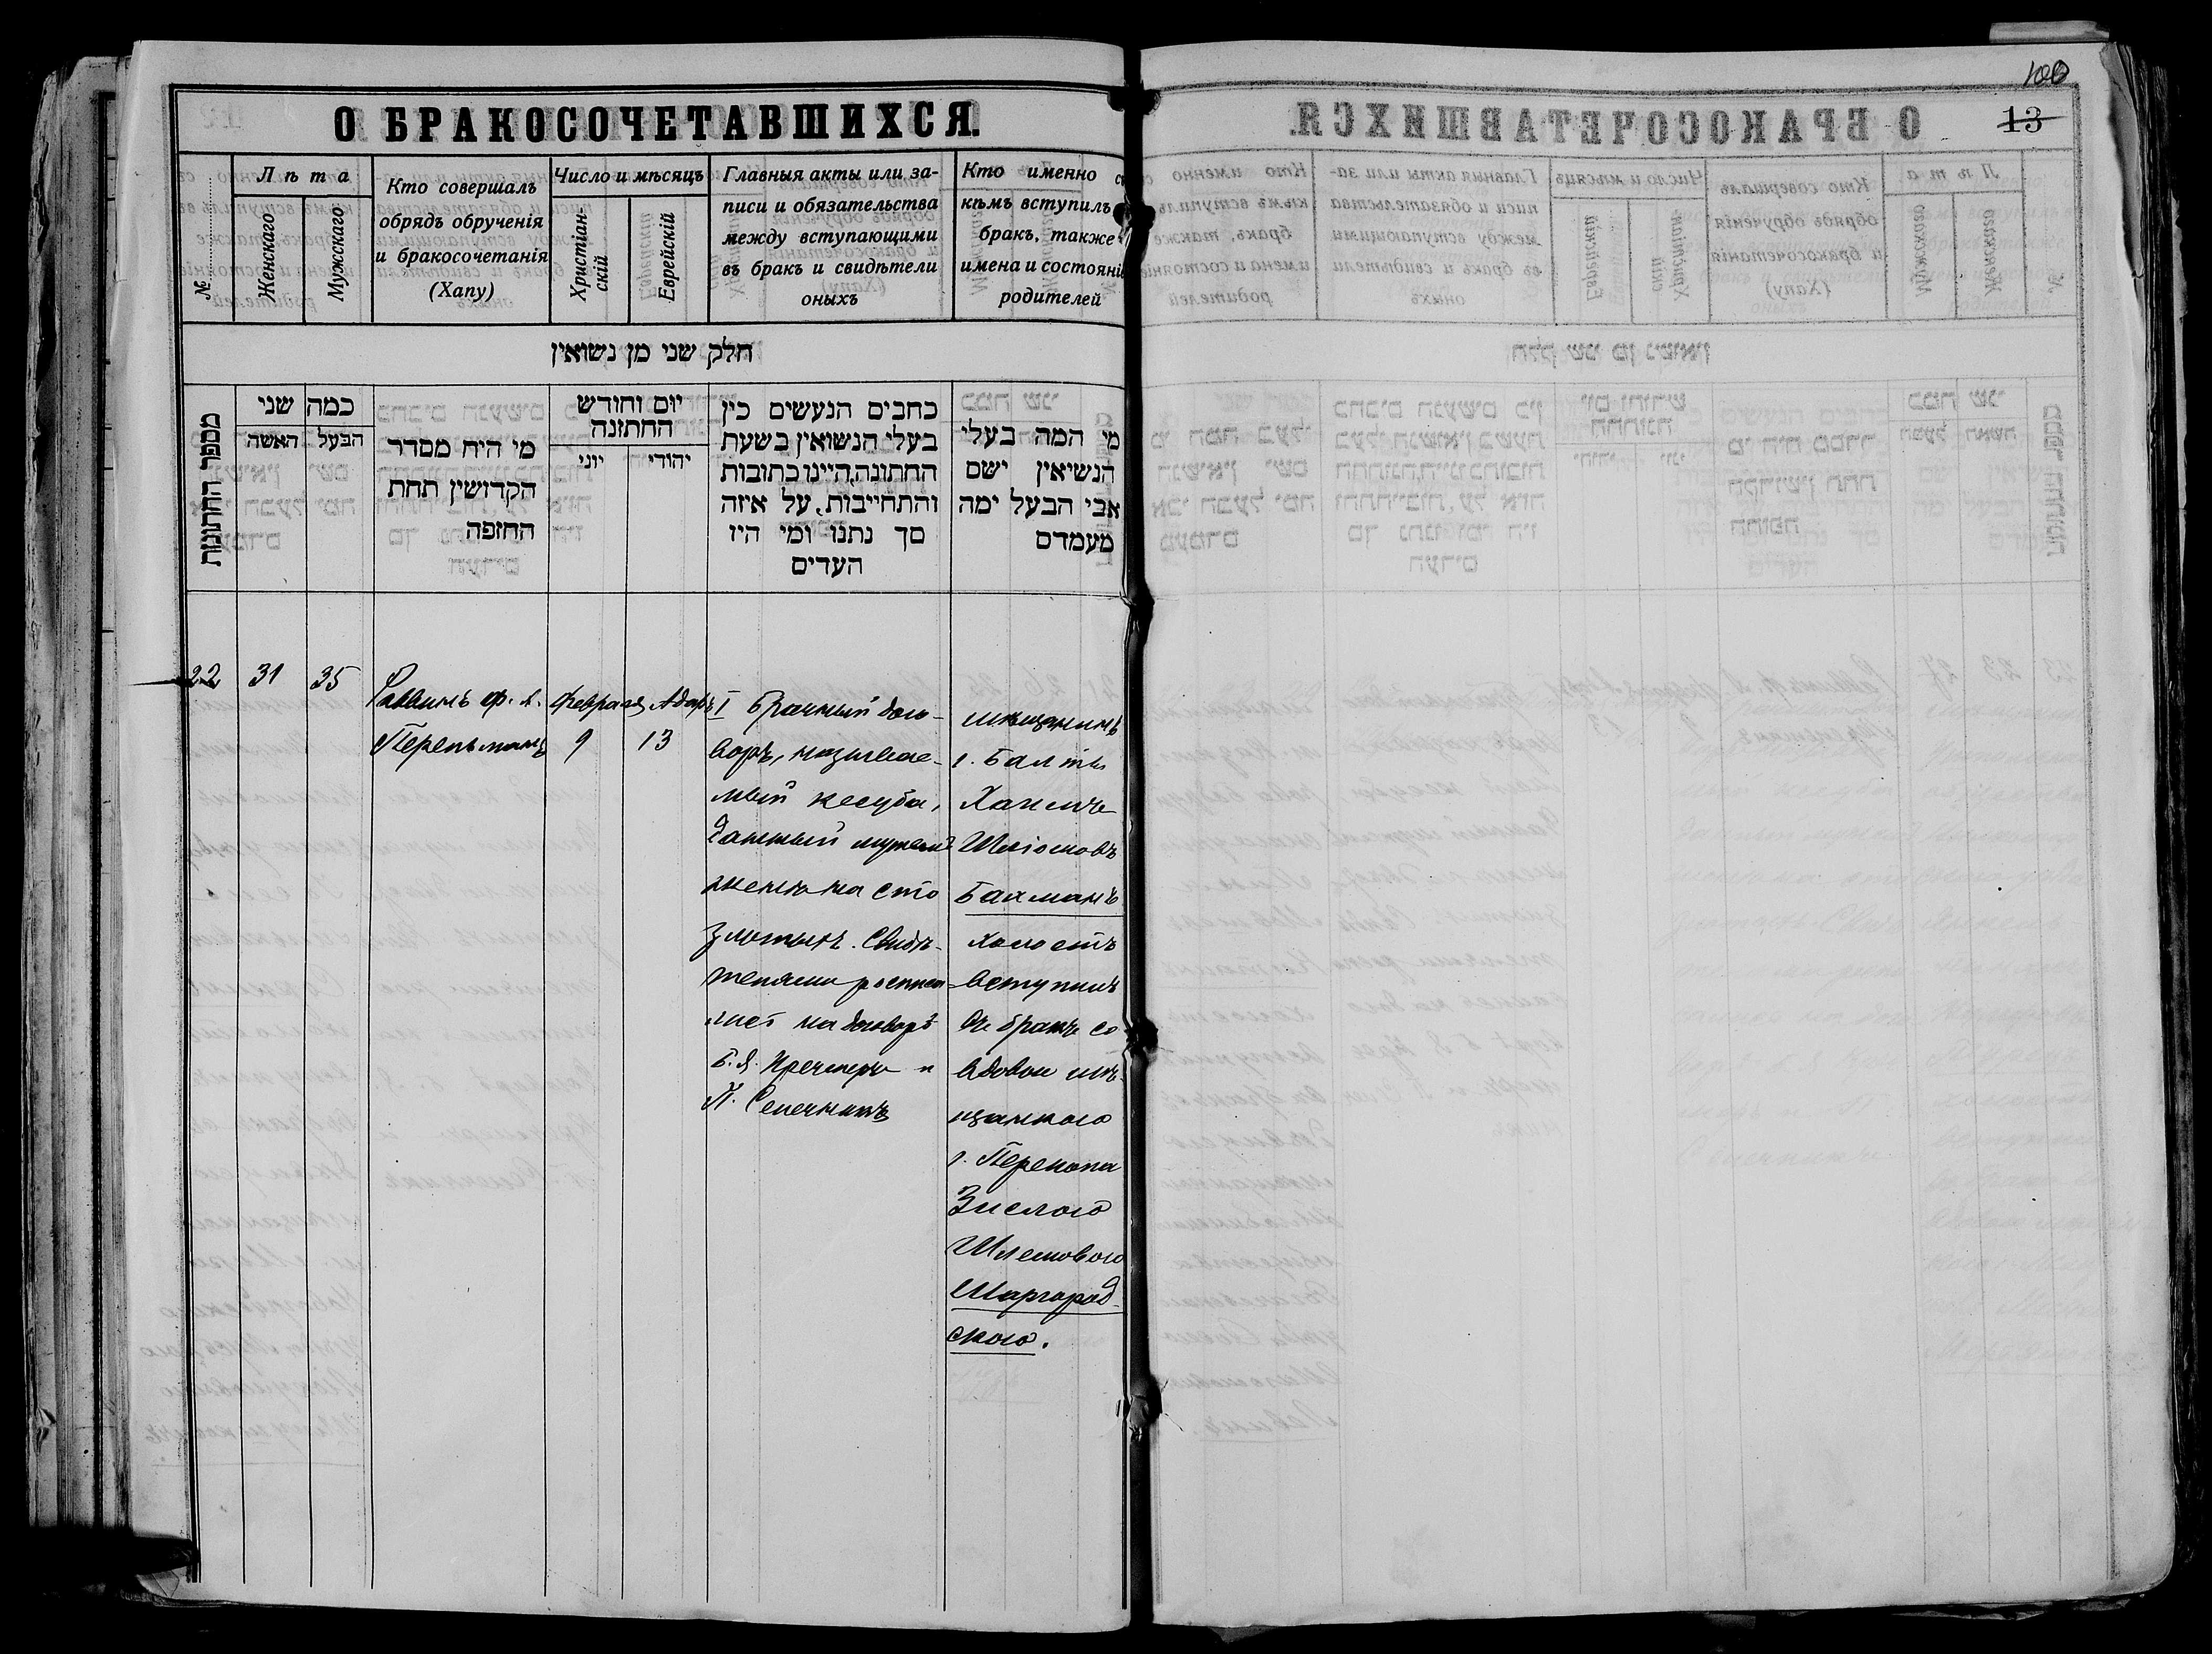 О БРАКОСОЧЕТАВШИХСЯ.
100
13
№
Лѣта
Женскаго
Мужскаго
Кто совершалъ
обрядъ обрученія
и бракосочетанія
(Хапу)
Число и мѣсяцъ
Христіан-
скій
Еврейскій
Главныя акты или за-
писи и обязательства
между вступающими
въ бракъ и свидѣтели
оныхъ
Кто именно съ
кѣмъ вступилъ
бракъ, также
имена и состояніе
родителей
חלק שני מן נשואין
מספר החתונות
כמה שני
האשה
הבעל
מי היה מסדר
הקדושין תחת
החופה
יום וחודש
החתונה
יוני
יהודי
כתבים הנעשים בין
בעלי הנשואין בשעת
החתונה, היינו כתובות
והתחייבות, על איזה
סך נתנו ומי היו
העדים
מי המה בעלי
הנשיאין ישם
אבי הבעל ימה
מעמדם
22
31
35
Раввинъ Ф. А.
Перельманъ
Февраля
9
Адаръ I
13
Брачный дого-
воръ, называе-
мый кесуба,
данный мужемъ
женѣ на сто
злотыхъ. Свидѣ-
телями росписа-
лись на договорѣ
Б. Я. Кремеръ и
П. Селечникъ
мѣщанинъ
г. Балты
Хаимъ
Шліомовъ
Бахманъ
холостъ
вступилъ
въ бракъ со
вдовою мѣ-
щанкою
г. Перекопа
Зислою
Шлемовою
Шаргород-
скою.